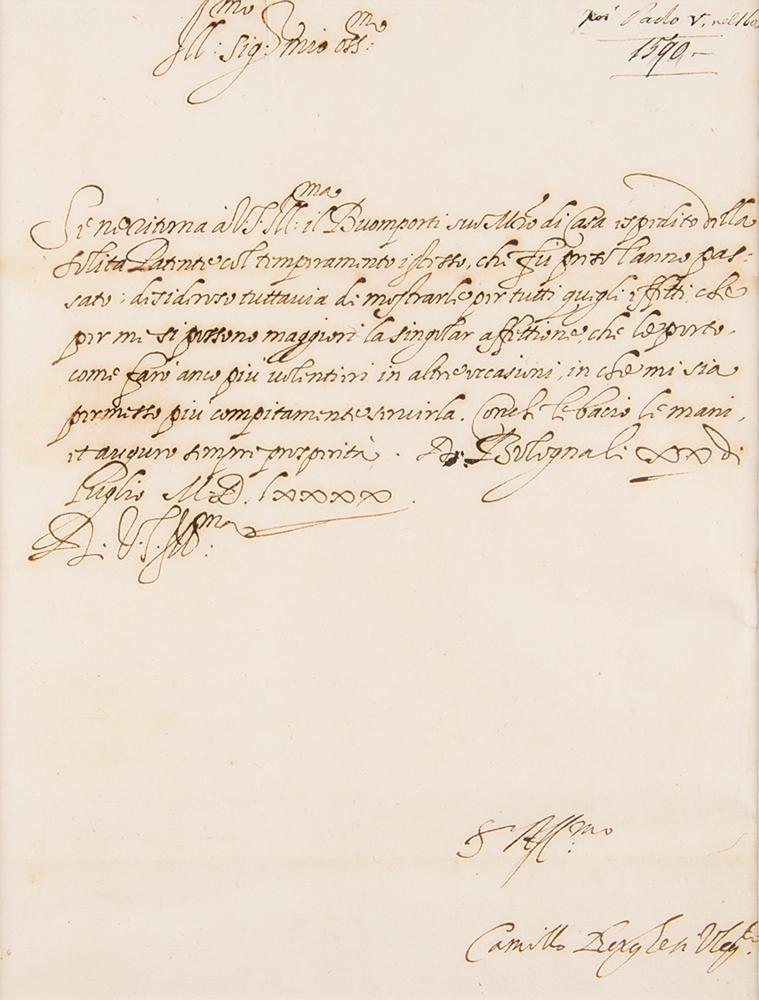 poi Paolo V. nel 160
1590 –
Ill.mo Sig.r mio oss.mo
Se ne ritorna à V.S. Ill.ma il Buomporti suo M.ro di Casa espedito della
solita Patente col temperamento istesso, che fu preso l'anno pas:
sato: desideroso tuttavia de mostrarle per tutti quegli effetti, che
per me si possono maggiori la singolar affettione, che le porto,
come farò anco più volentieri in altre occasioni, in che mi sia
permesso più compitamente servirla. Con che le bacio le mani,
et auguro sempre prosperità. Di Bologna li XX di
Luglio M.D.lxxxx.
D. V.S. Ill.ma
S.r Aff.mo
Camillo Borghesi Viceleg.to